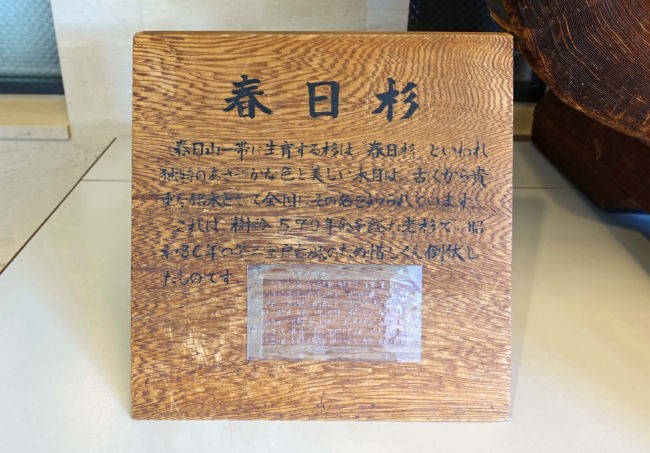 春日杉
春日山一帯に生育する杉は“春日杉”といわれ
独特のあざやかな色と美しい木目は、古くから貴
重な銘木として全国にその名を知られています。
これは、樹令570年余を経た老杉で、昭
和36年の第二室戸台風のため惜しくも倒伏し
たものです